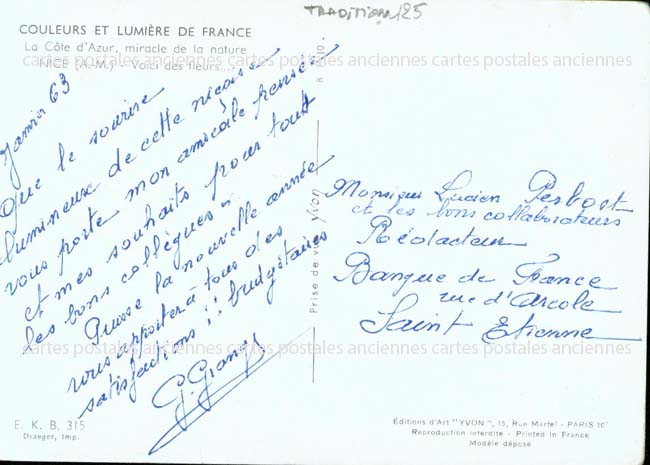 TRADITION 125
COULEURS ET LUMIÈRE DE FRANCE
La Côte d'Azur, miracle de la nature
NICE (A.-M.) - Voici des fleurs...
cartes postales anciennes cartes postales anciennes cartes postales anciennes
Janvier 63
Que le sourire
lumineux de cette niçoise
vous porte mon amicale pensée
et mes souhaits pour tous
les bons collègues.
Puisse la nouvelle année
vous apporter à tous des
satisfactions !! budgétaires
G. Grange
Prise de vue Yvon
Monsieur Lucien Perbost
et les bons collaborateurs
Rédacteur
Banque de France
rue d'Arcole
Saint Etienne
cartes postales anciennes cartes postales anciennes cartes postales anciennes
E. K. B. 315
Draeger, Imp.
Éditions d'Art "YVON", 15, Rue Martel - PARIS 10e
Reproduction interdite - Printed in France
Modèle déposé